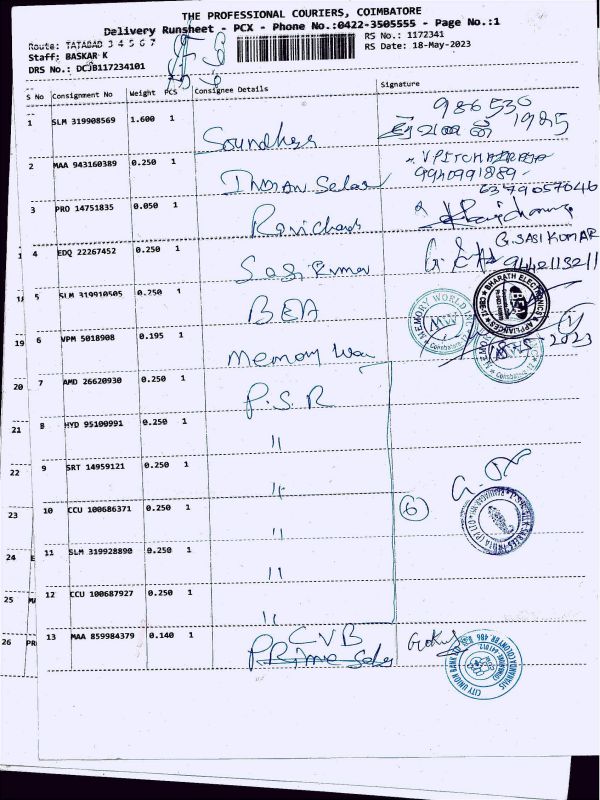 THE PROFESSIONAL COURIERS, COIMBATORE
Delivery Runsheet - PCX - Phone No.:0422-3505555 - Page No.:1
Route: TATABAD 3 4 5 6 7
RS No.: 1172341
Staff: BASKAR K
RS Date: 18-May-2023
DRS No.: DCJB117234101
S No Consignment No Weight PCS Consignee Details Signature
1 SLM 319908569 1.600 1 986530 1985
2 MAA 943160389 0.250 1 INDIAN Sales 9940991889
3 PRO 14751835 0.050 1 Ravichand 6379057046
4 EDQ 22267452 0.250 1 Sasi Kumar G. SASIKUMAR 9442113211
5 SLM 319910505 0.250 1 BEA BHARATH ELECTRONICS & APPLIANCES
6 VPM 5018908 0.195 1 Memory MEMORY WORLD MW Coimbatore 2023
7 AMD 26620930 0.250 1 P.S.R
8 HYD 95100991 0.250 1 "
9 SRT 14959121 0.250 1 "
10 CCU 100686371 0.250 1 " 6
11 SLM 319928890 0.250 1 "
12 CCU 100687927 0.250 1 "
13 MAA 859984379 0.140 1 CVB Gokul
CITY UNION BANK
19
20
21
22
23
24
25
26